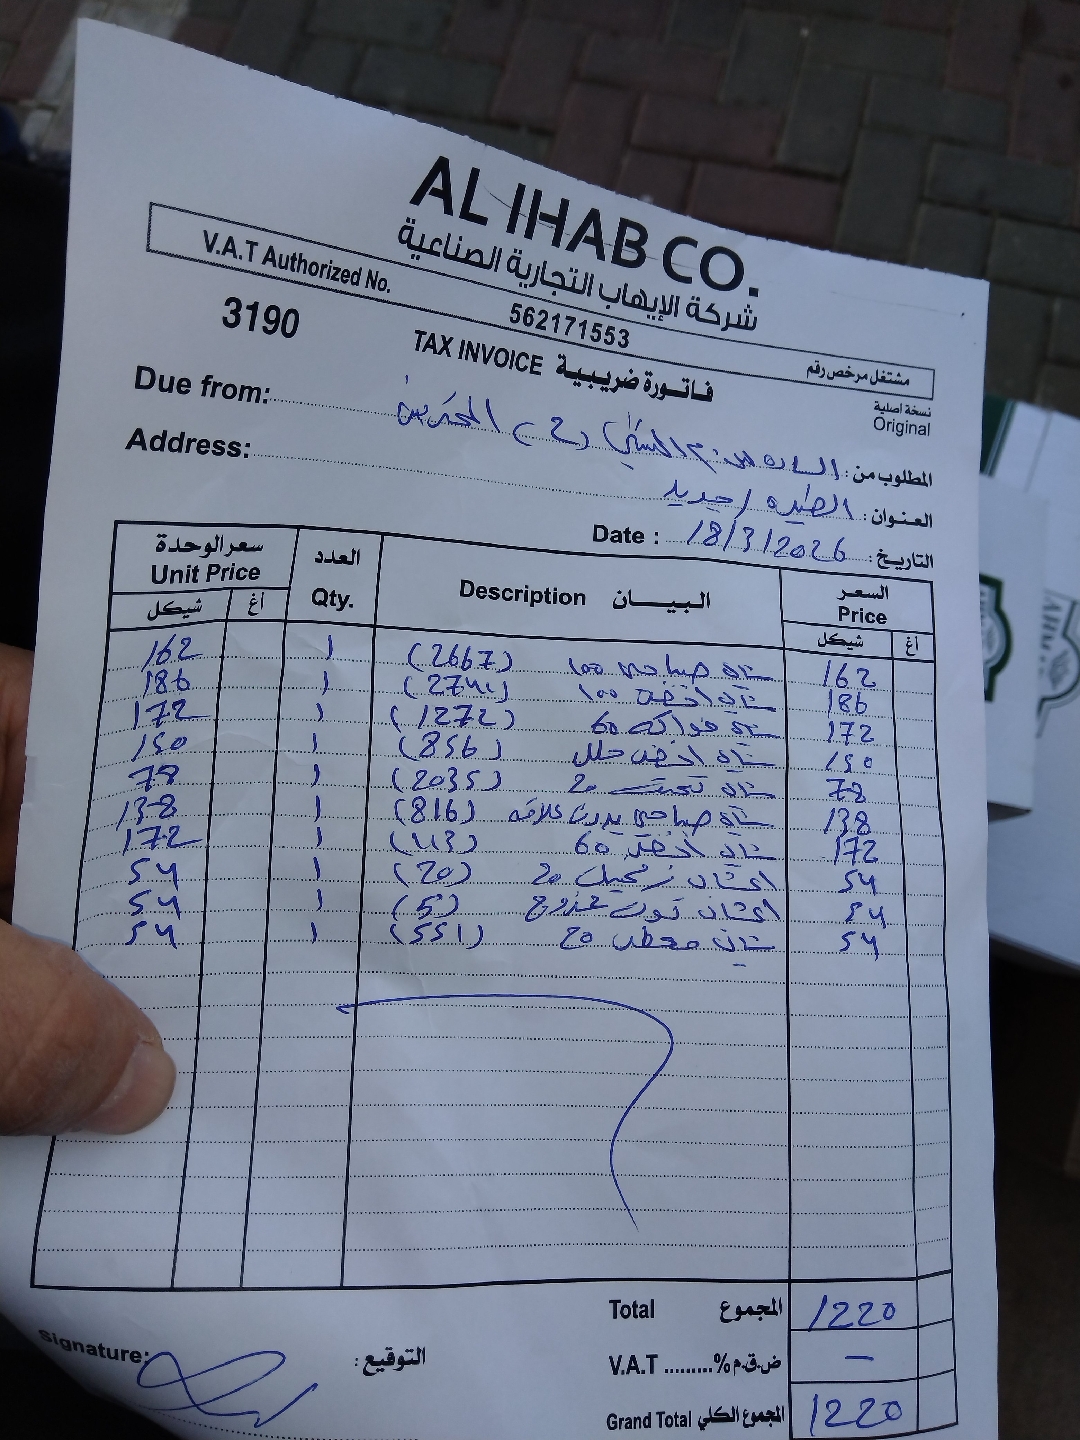 AL IHAB CO.
شركة الإيهاب التجارية الصناعية
V.A.T Authorized No. 562171553 مشتغل مرخص رقم
3190 TAX INVOICE فاتورة ضريبية نسخة اصلية
Original
Due from: المطلوب من: الساده (2)
Address: العنوان: الطيره / جديد
Date : 18/3/2026 التاريخ:
سعر الوحدة العدد البيـــان السعر
Unit Price Qty. Description Price
شيكل أغ شيكل أغ
162 1 (2667) شاي صباحي 100 162
186 1 شاي اخضر 100 186
172 1 (1272) شاي فواكه 60 172
150 1 (856) شاي اخضر 150
78 1 (2035) شاي 20 78
138 1 (816) شاي صباحي بدون علاقه 138
172 1 شاي اخضر 60 172
54 1 (20) اعشاب زنجبيل 20 54
54 1 (5) اعشاب 54
54 1 (551) 20 54
Total المجموع 1220
V.A.T .........% ض.ق.م —
Grand Total المجموع الكلي 1220
Signature: التوقيع: